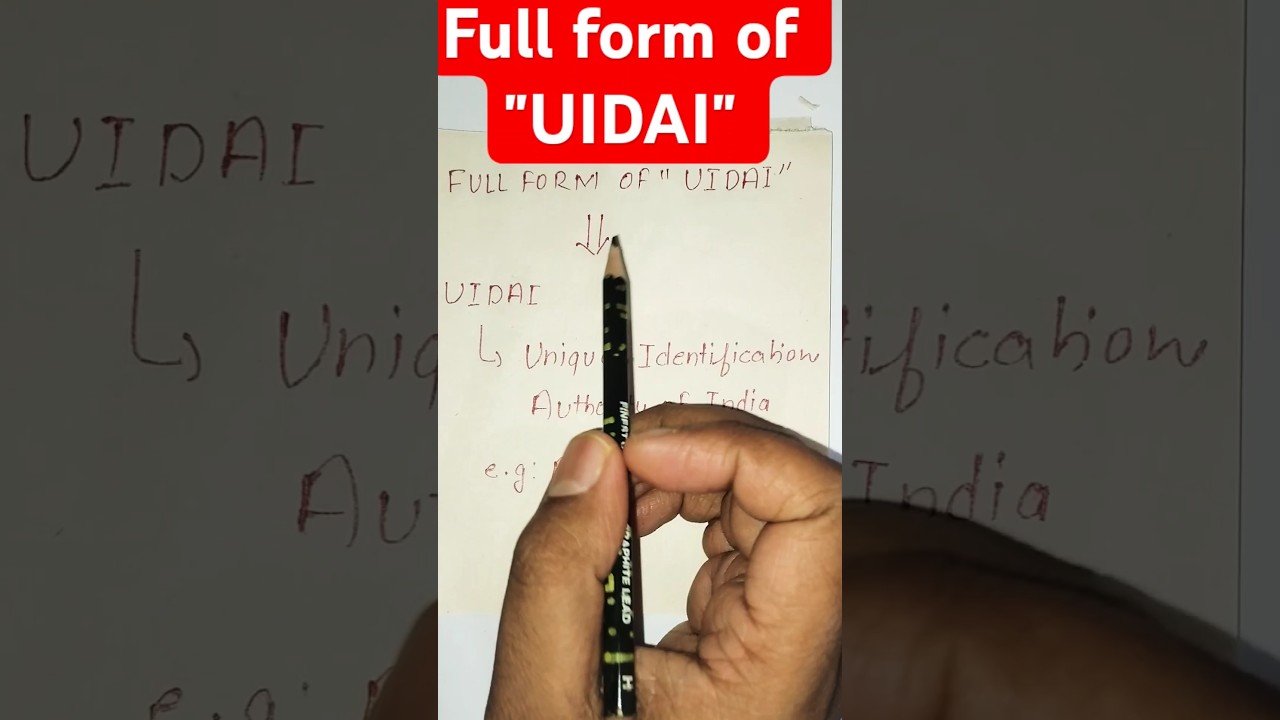 Full form of
"UIDAI"
FULL FORM OF "UIDAI"
UIDAI
Identification
of India
e.g:
GRAPHITE LEAD
H